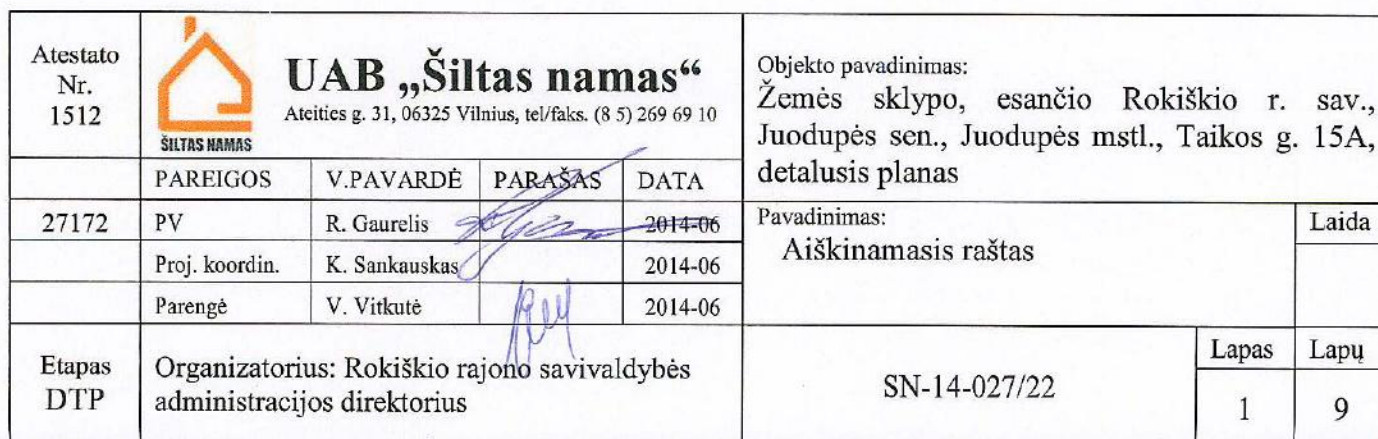 Atestato
Nr.
1512
ŠILTAS NAMAS
UAB „Šiltas namas“
Ateities g. 31, 06325 Vilnius, tel/faks. (8 5) 269 69 10
Objekto pavadinimas:
Žemės sklypo, esančio Rokiškio r. sav.,
Juodupės sen., Juodupės mstl., Taikos g. 15A,
detalusis planas
PAREIGOS V.PAVARDĖ PARAŠAS DATA
27172 PV R. Gaurelis 2014-06
Proj. koordin. K. Sankauskas 2014-06
Parengė V. Vitkutė 2014-06
Pavadinimas:
Aiškinamasis raštas
Laida
Etapas
DTP
Organizatorius: Rokiškio rajono savivaldybės
administracijos direktorius
SN-14-027/22
Lapas Lapų
1 9